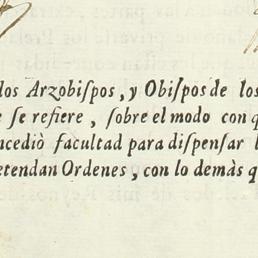 dos Arzobispos, y Obispos de los
se refiere, sobre el modo con q
ncediò facultad para dispensar l
etendan Ordenes, con lo demàs q